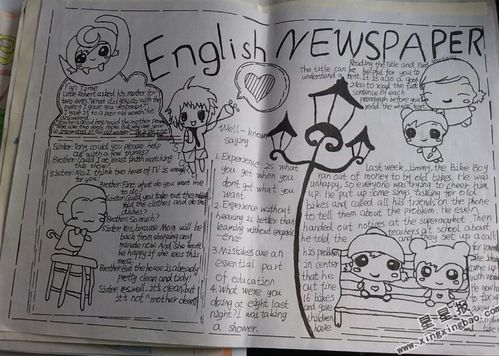 English NEWSPAPER
Fun Time
Little Robert asked his mother for
two cents. "What did you do with the
money I gave you yesterday?"
"I gave it to a poor old woman," he
answered.
Sister: Tony, could you please help
me with a few things?
Brother: Could I at least finish watching
this show?
Sister: No. I think two hours of TV is enough
for you
Brother: Fine, what do you want me
to do?
Sister: Could you take out the rubbish,
fold the clothes and do the
dishes?
Brother: So much?
Sister: Yes, because Mom will be
back from shopping any
minute now. And she won't
be happy if she sees this
mess!
Brother: But the house is already
pretty clean and tidy
Sister: Yes, well, it's clean, but
it's not "mother clean"
Well-known
saying
1. Experience is what
you get when you
don't get what you
want
2. Experience without
learning is better than
learning without experi-
ence
3. Mistakes are an
essential part
of education
4. What were you
doing at eight last
night? I was taking
a shower.
Reading the title and
The title can be helpful for you to
understand a text. It is also a good
idea to read the first
sentence of each
paragraph before you
read the whole text
Last week, Jimmy, the Bike Boy
ran out of money to by old bikes. He was
unhappy. So everyone was trying to cheer him
up. He put up some signs asking for old
bikes and called all his friends on the phone
to tell them about the problem. He even
handed out notices at the supermarket. Then
he told the teachers at school about
his problem and they set up a call
in center
that he
out fine
16 bikes
and give
children
have
星星报
www.xingxingbao.com